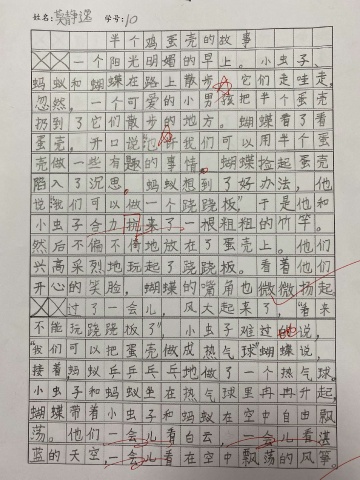 姓名:莫静遥 学号:10
半个鸡蛋壳的故事
一个阳光明媚的早上。小虫子、
蚂蚁和蝴蝶在路上散步。它们走哇走。
忽然。一个可爱的小男孩把半个蛋壳
扔到了它们散步的地方。蝴蝶看了看
蛋壳。开口说:"也许我们可以用半个蛋
壳做一些有趣的事情。蝴蝶捡起蛋壳
陷入了沉思。蚂蚁想到了好办法,他
说"我们可以做一个跷跷板"于是他和
小虫子合力搬来了一根粗粗的竹竿。
然后不偏不倚地放在了蛋壳上。他们
兴高采烈地玩起了跷跷板。看着他们
开心的笑脸,蝴蝶的嘴角也微微扬起
过了一会儿,风大起来了,"看来
不能玩跷跷板了",小虫子难过地说,
"我们可以把蛋壳做成热气球"蝴蝶说,
接着,蚂蚁乒乒乓乓地做了一个热气球。
小虫子和蚂蚁坐在热气球里冉冉升起,
蝴蝶带着小虫子和蚂蚁在空中自由飘
荡。他们一会儿看白云,一会儿看湛
蓝的天空,一会儿看在空中飘荡的风筝。